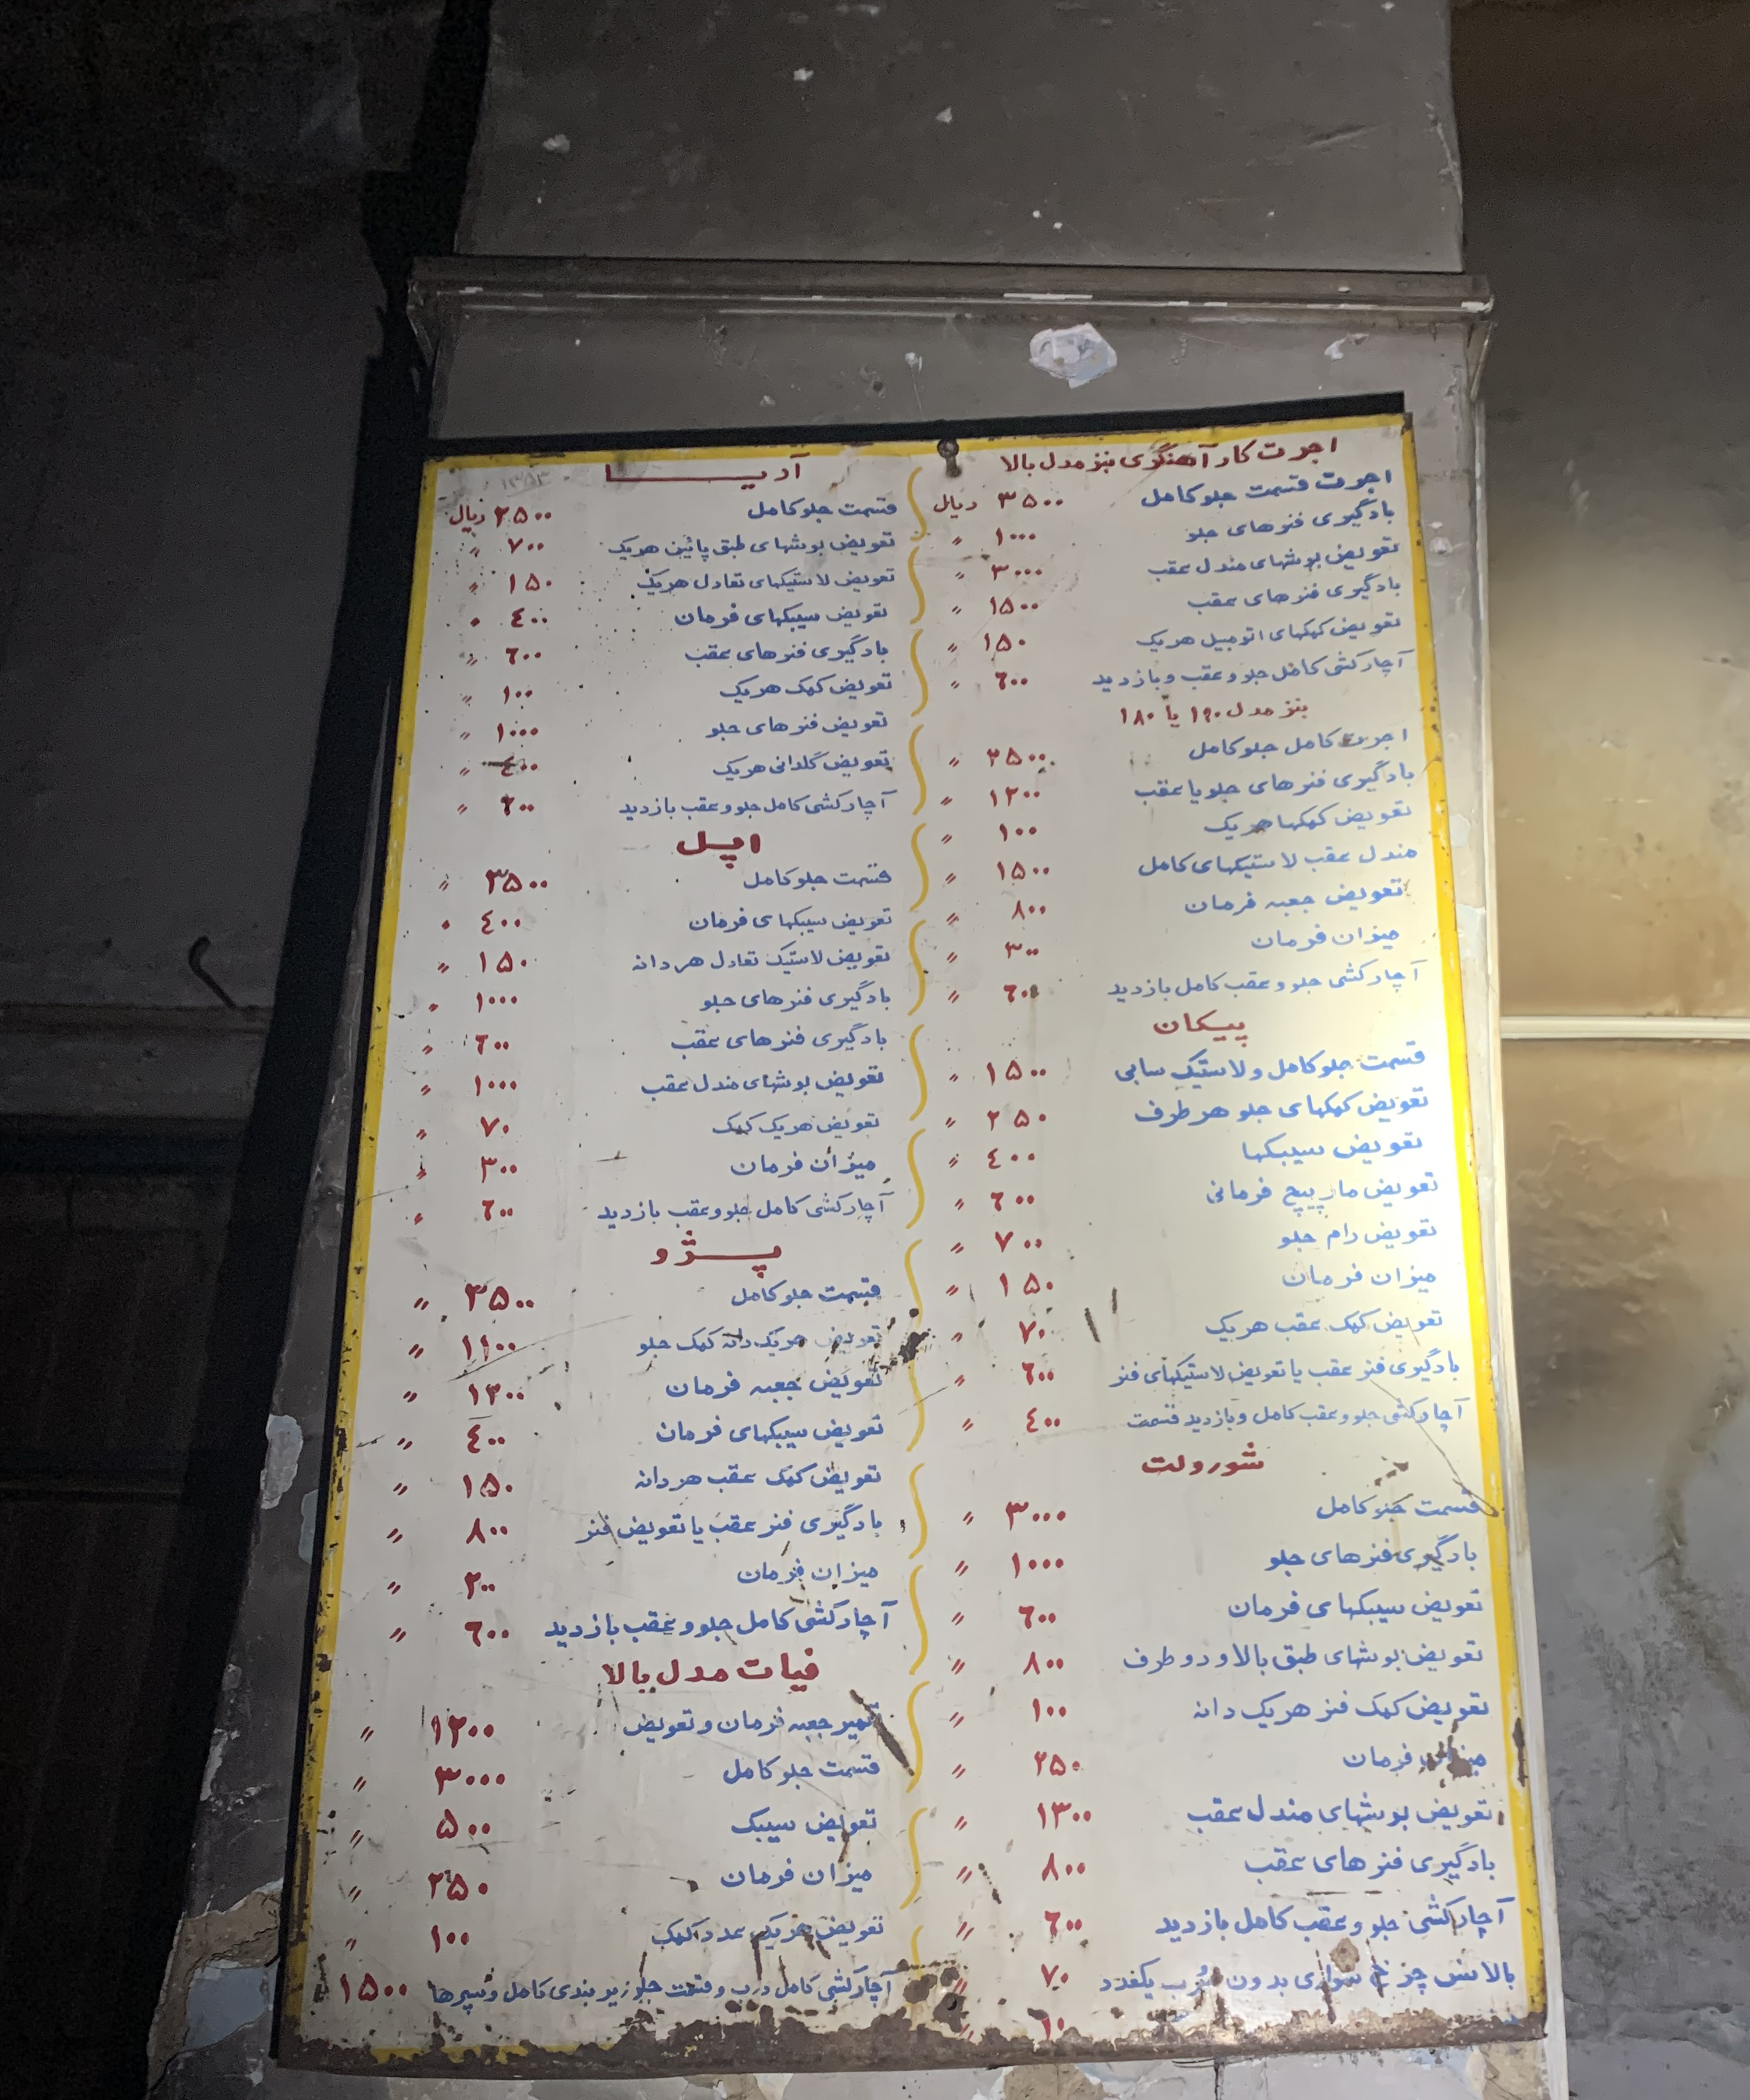 اجرت کار آهنگری بنز مدل بالا
اجرت قسمت جلو کامل ۳۵۰۰ ریال
بادگیری فنرهای جلو ۱۰۰۰ "
تعویض بوشهای مندل عقب ۳۰۰۰ "
بادگیری فنرهای عقب ۱۵۰۰ "
تعویض کهکهای اتومبیل هریک ۱۵۰ "
آچارکشی کامل جلو و عقب و بازدید ۶۰۰ "
بنز مدل ۱۹۰ یا ۱۸۰
اجرت کامل جلو کامل ۲۵۰۰ "
بادگیری فنرهای جلو یا عقب ۱۲۰۰ "
تعویض کهکها هریک ۱۰۰ "
مندل عقب لاستیکهای کامل ۱۵۰۰ "
تعویض جعبه فرمان ۸۰۰ "
میزان فرمان ۳۰۰ "
آچارکشی جلو و عقب کامل بازدید ۶۰۰ "
پیکان
قسمت جلو کامل و لاستیک سابی ۱۵۰۰ "
تعویض کهکهای جلو هر طرف ۲۵۰ "
تعویض سیبکها ۴۰۰ "
تعویض مارپیچ فرمانی ۶۰۰ "
تعویض رام جلو ۷۰۰ "
میزان فرمان ۱۵۰ "
تعویض کهک عقب هریک ۷۰ "
بادگیری فنر عقب یا تعویض لاستیکهای فنر ۶۰۰ "
آچارکشی جلو و عقب کامل و بازدید قسمت ۴۰۰ "
شورولت
قسمت جلو کامل ۳۰۰۰ "
بادگیری فنرهای جلو ۱۰۰۰ "
تعویض سیبکهای فرمان ۶۰۰ "
تعویض بوشهای طبق بالا و دو طرف ۸۰۰ "
تعویض کهک فنر هریک دانه ۱۰۰ "
میزان فرمان ۲۵۰ "
تعویض بوشهای مندل عقب ۱۳۰۰ "
بادگیری فنرهای عقب ۸۰۰ "
آچارکشی جلو و عقب کامل بازدید ۶۰۰ "
بالانس چرخ سواری بدون سرب یکعدد ۷۰ "
۶۰ "
آدیا
۱۳۵۳
قسمت جلو کامل ۲۵۰۰ ریال
تعویض بوشهای طبق پائین هریک ۷۰۰ "
تعویض لاستیکهای تعادل هریک ۱۵۰ "
تعویض سیبکهای فرمان ۴۰۰ "
بادگیری فنرهای عقب ۶۰۰ "
تعویض کهک هریک ۱۰۰ "
تعویض فنرهای جلو ۱۰۰۰ "
تعویض گلدانی هریک ۴۰۰ "
آچارکشی کامل جلو و عقب بازدید ۶۰۰ "
اپل
قسمت جلو کامل ۳۵۰۰ "
تعویض سیبکهای فرمان ۴۰۰ "
تعویض لاستیک تعادل هر دانه ۱۵۰ "
بادگیری فنرهای جلو ۱۰۰۰ "
بادگیری فنرهای عقب ۶۰۰ "
تعویض بوشهای مندل عقب ۱۰۰۰ "
تعویض هریک کهک ۷۰ "
میزان فرمان ۳۰۰ "
آچارکشی کامل جلو و عقب بازدید ۶۰۰ "
پژو
قسمت جلو کامل ۳۵۰۰ "
تعویض هریک دانه کهک جلو ۱۱۰۰ "
تعویض جعبه فرمان ۱۲۰۰ "
تعویض سیبکهای فرمان ۴۰۰ "
تعویض کهک عقب هر دانه ۱۵۰ "
بادگیری فنر عقب یا تعویض فنر ۸۰۰ "
میزان فرمان ۲۰۰ "
آچارکشی کامل جلو و عقب بازدید ۶۰۰ "
فیات مدل بالا
تعمیر جعبه فرمان و تعویض ۱۲۰۰ "
قسمت جلو کامل ۳۰۰۰ "
تعویض سیبک ۵۰۰ "
میزان فرمان ۲۵۰ "
تعویض هریک عدد کهک ۱۰۰ "
آچارکشی کامل درب و قسمت جلو زیر بندی کامل و سپرها ۱۵۰۰